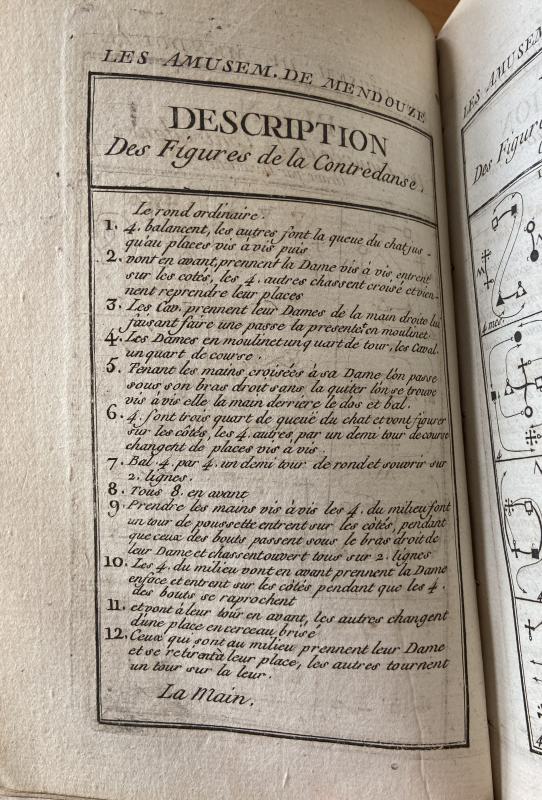 LES AMUSEM. DE MENDOUZE
DESCRIPTION
Des Figures de la Contredanse.
Le rond ordinaire.
1. 4. balancent, les autres font la queue du chat jus-
qu'au places vis à vis puis
2. vont en avant, prennent la Dame vis à vis entrent
sur les cotés, les 4. autres chassent croisé et vien-
nent reprendre leur places
3. Les Cav. prennent leur Dames de la main droite lui
faisant faire une passe la presente.t en moulinet
4. Les Dames en moulinet un quart de tour, les Caval.
un quart de course.
5. Tenant les mains croisées à sa Dame l'on passe
sous son bras droit sans la quiter l'on se trouve
vis à vis elle la main derriere le dos et bal.
6. 4. font trois quart de queuë du chat et vont figurer
sur les côtés, les 4. autres par un demi tour de course
changent de places vis à vis.
7. Bal. 4. par 4. un demi tour de rond et souvrir sur
2. lignes.
8. Tous 8. en avant
9. Prendre les mains vis à vis les 4. du milieu font
un tour de poussette entrent sur les côtés, pendant
que ceux des bouts passent sous le bras droit de
leur Dame et chassent ouvert tous sur 2. lignes
10. Les 4. du milieu vont en avant prennent la Dame
enface et entrent sur les côtés pendant que les 4.
des bouts se raprochent
11. et vont à leur tour en avant, les autres changent
d'une place en cerceau brisé
12. Ceux qui sont au milieu prennent leur Dame
et se retirent à leur place, les autres tournent
un tour sur la leur.
La Main.
LES AMUSEM
Des Figure